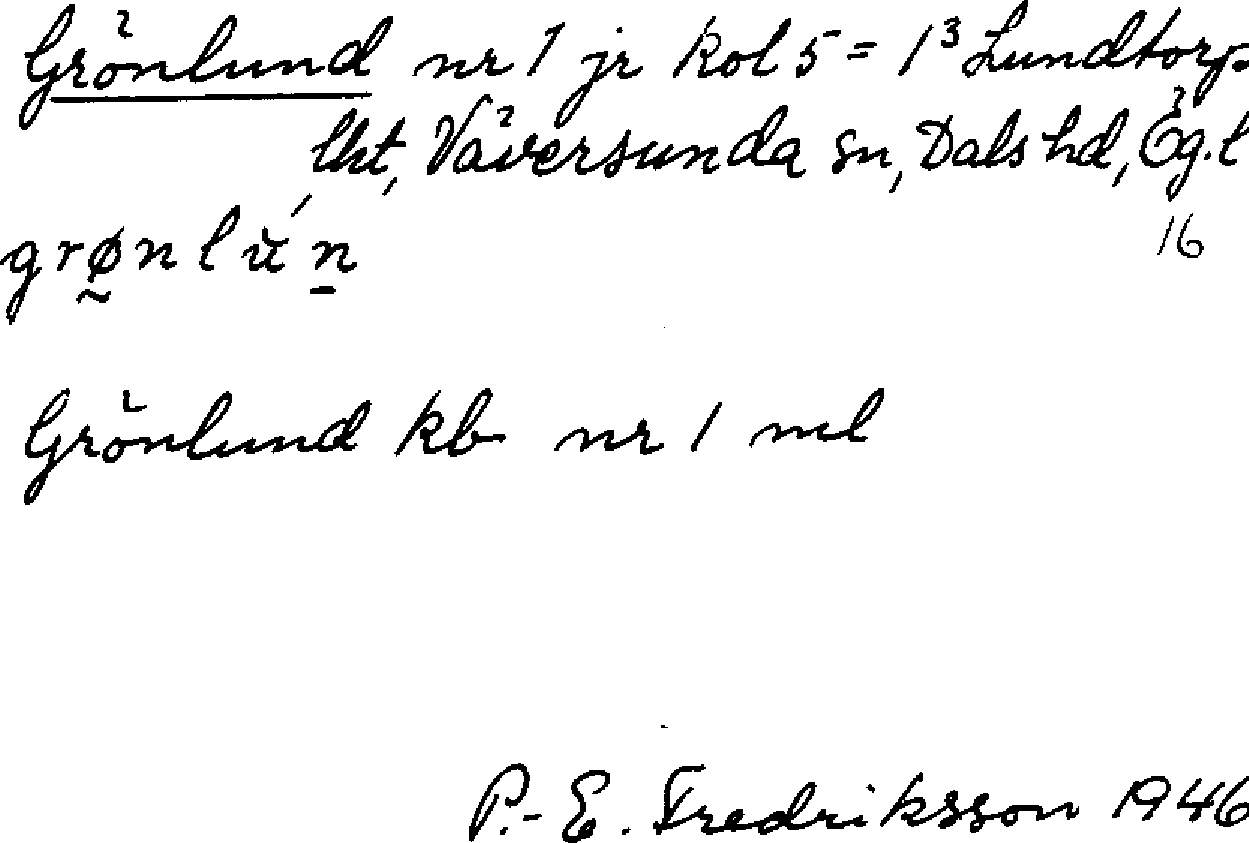 Grönlund nr 1 jr kol 5 = 1³ Lundtorp
lht, Väversunda sn, Dals hd, Ög.l
grø̰nlǔ́n̲
16
Grönlund kb nr 1 ml
P.-E. Fredriksson 1946